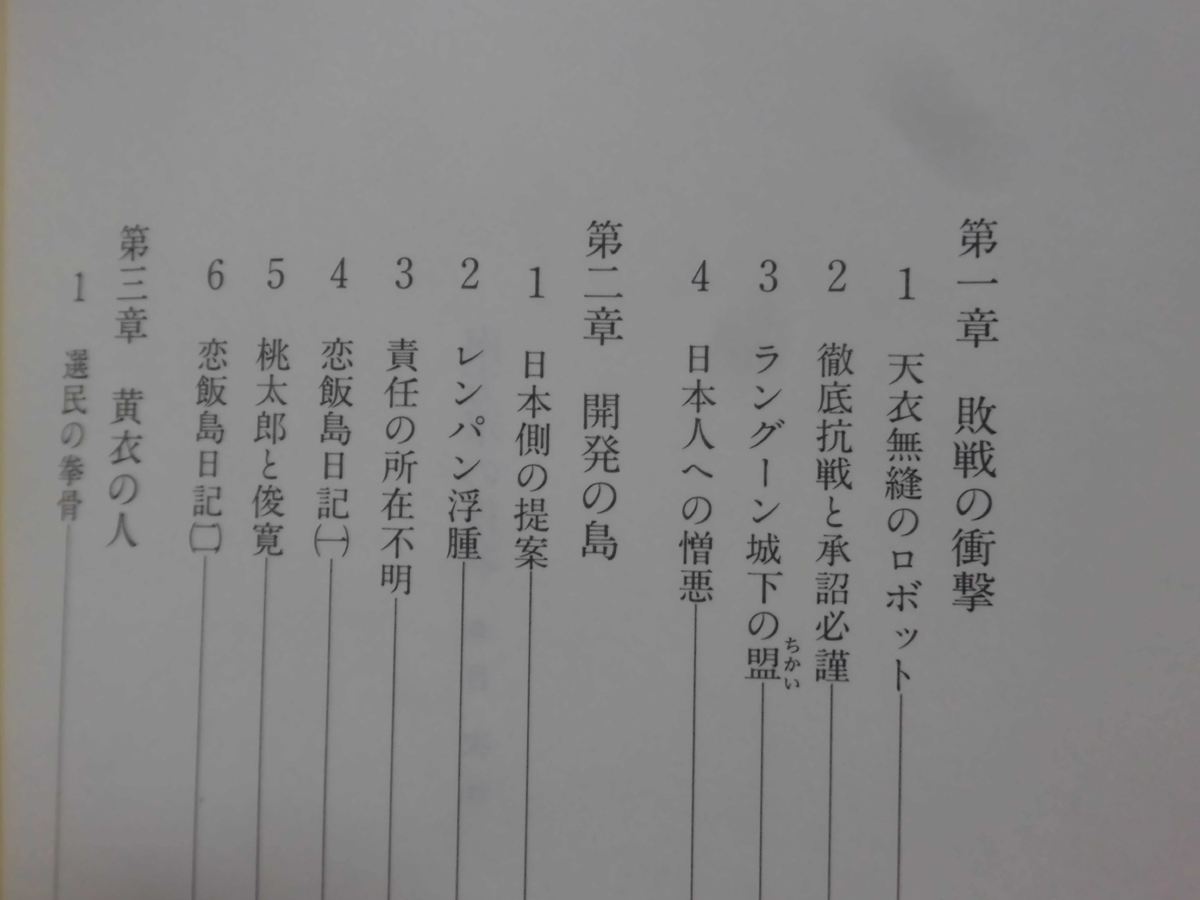 第一章　敗戦の衝撃
1　天衣無縫のロボット
2　徹底抗戦と承詔必謹
3　ラングーン城下の盟
ちかい
4　日本人への憎悪
第二章　開発の島
1　日本側の提案
2　レンパン浮腫
3　責任の所在不明
4　恋飯島日記㈠
5　桃太郎と俊寛
6　恋飯島日記㈡
第三章　黄衣の人
1　選民の拳骨